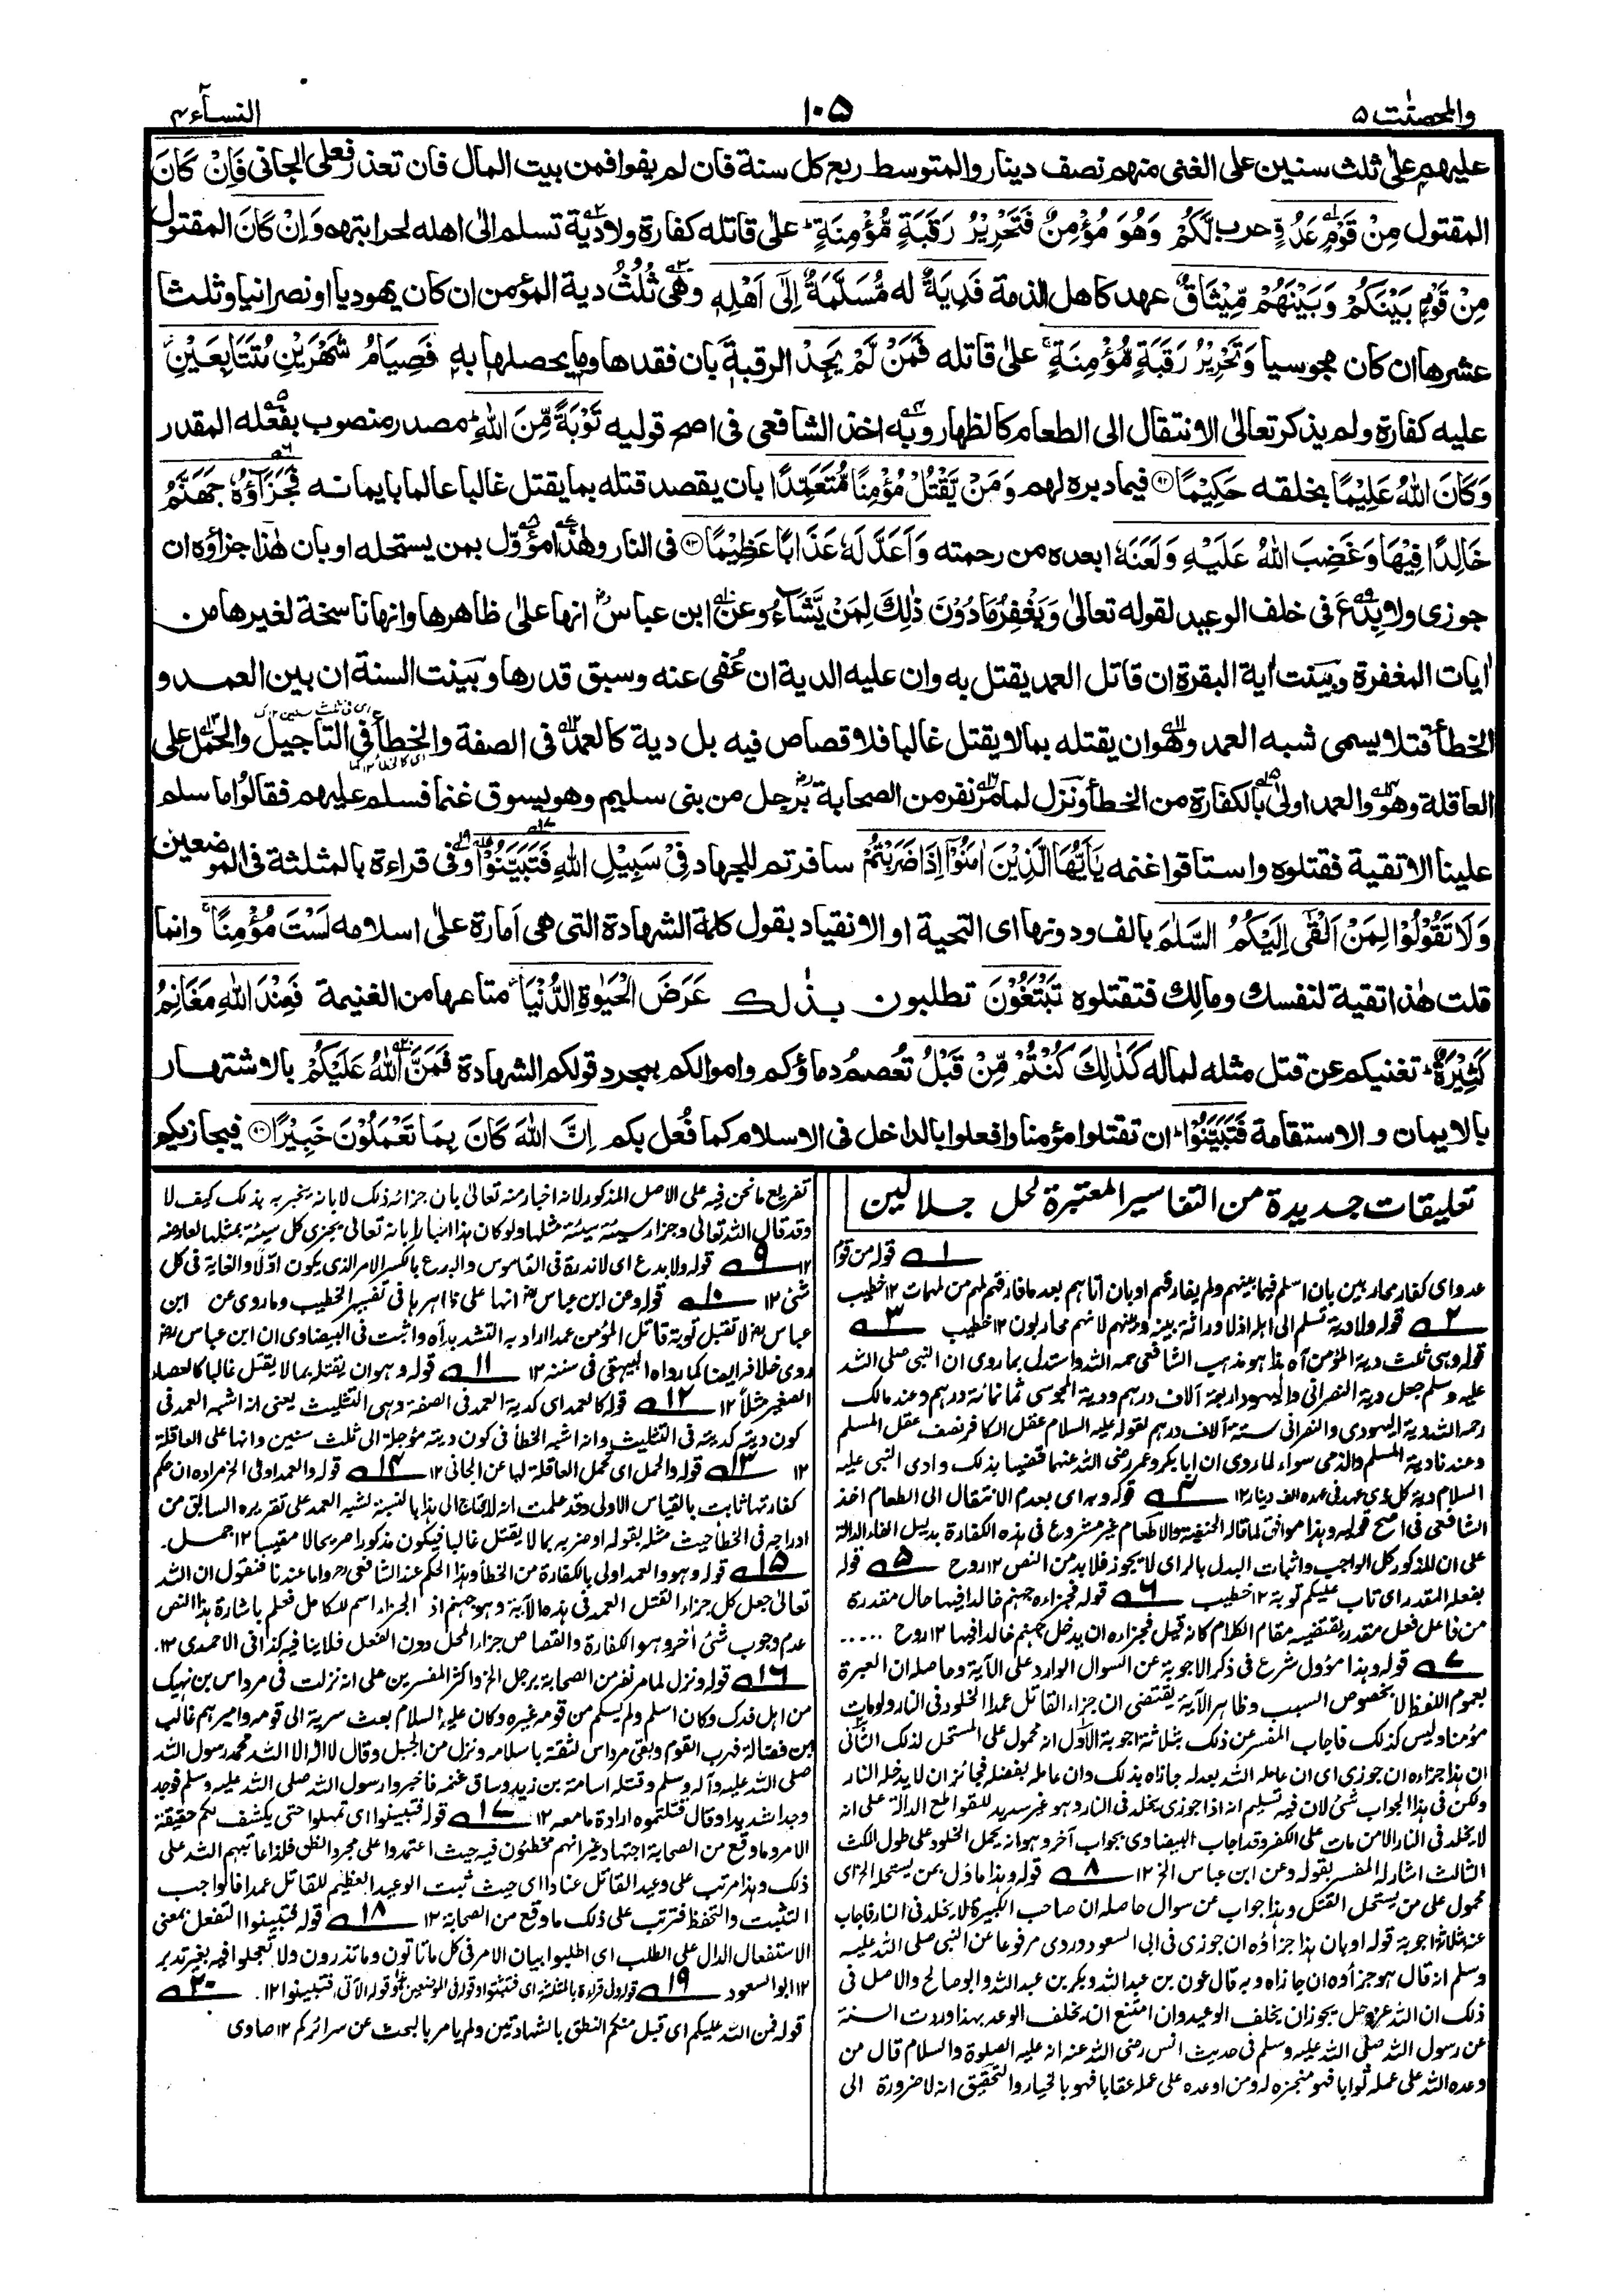 والمحصنٰت ۵
۱۰۵
النسآء ۴
عليهم علىٰ ثلث سنين على الغنى منهم نصف دينار والمتوسط ربع كل سنة فان لم يفوا فمن بيت المال فان تعذر فعلى الجانى فَاِنْ كَانَ
المقتول مِنْ قَوْمٍ عَدُوٍّ حرب لَّكُمْ وَهُوَ مُؤْمِنٌ فَتَحْرِيْرُ رَقَبَةٍ مُّؤْمِنَةٍ علىٰ قاتله كفارة ولا دية تسلم الىٰ اهله لحرابتهم وَاِنْ كَانَ المقتول
مِنْ قَوْمٍ بَيْنَكُمْ وَبَيْنَهُمْ مِّيْثَاقٌ عهد كاهل الذمة فَدِيَةٌ له مُّسَلَّمَةٌ اِلٰٓى اَهْلِهٖ وهى ثُلُثُ دية المؤمن ان كان يهوديا او نصرانيا وثلثا
عشرها ان كان مجوسيا وَتَحْرِيْرُ رَقَبَةٍ مُّؤْمِنَةٍ علىٰ قاتله فَمَنْ لَّمْ يَجِدْ الرقبة بان فقدها وما يحصلها به فَصِيَامُ شَهْرَيْنِ مُتَتَابِعَيْنِ
عليه كفارة ولم يذكر تعالىٰ الانتقال الى الطعام كالظهار وبه اخذ الشافعى فى اصح قوليه تَوْبَةً مِّنَ اللّٰهِ مصدر منصوب بفعله المقدر
وَكَانَ اللّٰهُ عَلِيْمًا بخلقه حَكِيْمًا ۹۲ فيما دبره لهم وَمَنْ يَّقْتُلْ مُؤْمِنًا مُّتَعَمِّدًا بان يقصد قتله بما يقتل غالبا عالما بايمانه فَجَزَآؤُهٗ جَهَنَّمُ
خَالِدًا فِيْهَا وَغَضِبَ اللّٰهُ عَلَيْهِ وَلَعَنَهٗ ابعده من رحمته وَاَعَدَّ لَهٗ عَذَابًا عَظِيْمًا ۹۳ فى النار وهٰذا مؤوّل بمن يستحله او بان هٰذا جزاؤه ان
جوزى ولا بِدْعَ فى خلف الوعيد لقوله تعالىٰ وَيَغْفِرُ مَا دُوْنَ ذٰلِكَ لِمَنْ يَّشَآءُ وعن ابن عباسؓ انها علىٰ ظاهرها وانها ناسخة لغيرها من
اٰيات المغفرة وبينت اٰية البقرة ان قاتل العمد يقتل به وان عليه الدية ان عُفى عنه وسبق قدرها وبينت السنة ان بين العمد و
الخطأ قتلا يسمى شبه العمد وهو ان يقتله بما لا يقتل غالبا فلا قصاص فيه بل دية كالعمد فى الصفة والخطأ فى التأجيل والحمل على
العاقلة وهو والعمد اولىٰ بالكفارة من الخطأ ونزل لما مرّ نفر من الصحابةؓ برجل من بنى سليم وهو يسوق غنما فسلم عليهم فقالوا ما سلم
علينا الا تقية فقتلوه واستاقوا غنمه يٰٓاَيُّهَا الَّذِيْنَ اٰمَنُوْٓا اِذَا ضَرَبْتُمْ سافرتم للجهاد فِيْ سَبِيْلِ اللّٰهِ فَتَبَيَّنُوْا وفى قراءة بالمثلثة فى الموضعين
وَلَا تَقُوْلُوْا لِمَنْ اَلْقٰٓى اِلَيْكُمُ السَّلٰمَ بالف ودونها اى التحية او الانقياد بقول كلمة الشهادة التى هى اَمارة علىٰ اسلامه لَسْتَ مُؤْمِنًا وانما
قلت هٰذا تقية لنفسك ومالك فتقتلوه تَبْتَغُوْنَ تطلبون بذٰلك عَرَضَ الْحَيٰوةِ الدُّنْيَا متاعها من الغنيمة فَعِنْدَ اللّٰهِ مَغَانِمُ
كَثِيْرَةٌ تغنيكم عن قتل مثله لماله كَذٰلِكَ كُنْتُمْ مِّنْ قَبْلُ تُعصم دماؤكم واموالكم بمجرد قولكم الشهادة فَمَنَّ اللّٰهُ عَلَيْكُمْ بالاشتهار
بالايمان والاستقامة فَتَبَيَّنُوْا ان تقتلوا مؤمنا وافعلوا بالداخل فى الاسلام كما فُعل بكم اِنَّ اللّٰهَ كَانَ بِمَا تَعْمَلُوْنَ خَبِيْرًا فيجازيكم
تعليقات جديدة من التفاسير المعتبرة لحل جلالين
۱ قوله من قوم
عدو اى كفار محاربين بان اسلم فيما بينهم ولم يفارقهم او بان اتاهم بعد ما فارقهم لهم من المهمات ۱۲ خطيب
۲ قوله ولا دية تسلم الى اهله اذ لا وراثة بينه وبينهم لانهم محاربون ۱۲ خطيب ۳
قوله وهى ثلث دية المؤمن آه هذا هو مذهب الشافعى رحمه الله واستدل بما روى ان النبى صلى الله
عليه وسلم جعل دية النصرانى واليهود اربعة آلاف درهم ودية المجوسى ثمانمائة درهم وعند مالك
رحمه الله دية اليهودى والنصرانى ستة آلاف درهم لقوله عليه السلام عقل الكافر نصف عقل المسلم
وعندنا دية المسلم والذمى سواء لما روى ان ابا بكر وعمر رضى الله عنهما قضيا بذلك وادى النبى عليه
السلام دية كل ذى عهد فى عهده الف دينار ۱۲ ۴ قوله وبه اى بعدم الانتقال الى الطعام اخذ
الشافعى فى اصح قوليه وهذا موافق لما قاله الحنفية والاطعام غير مشروع فى هذه الكفارة بدليل الفاء الدالة
على ان المذكور كل الواجب واثبات البدل بالراى لا يجوز فلا بد من النص ۱۲ روح ۵ قوله
بفعله المقدر اى تاب عليكم توبة ۱۲ خطيب ۶ قوله فجزاءه جهنم خالدا فيها حال مقدرة
من فاعل فعل مقدر يقتضيه مقام الكلام كانه قيل فجزاءه ان يدخل جهنم خالدا فيها ۱۲ روح .....
۷ قوله وهذا مؤول شرع فى ذكر الاجوبة عن السوال الوارد على الآية وحاصله ان العبرة
بعموم اللفظ لا بخصوص السبب وظاهر الآية يقتضى ان جزاء القاتل عمدا الخلود فى النار ولو مات
مؤمنا وليس كذلك فاجاب المفسر عن ذلك بثلاثة اجوبة الاول انه محمول على المستحل لذلك الثانى
ان هذا جزاءه ان جوزى اى ان عامله الله بعدله جازاه بذلك وان عامله بفضله فجائز ان لا يدخله النار
ولكن فى هذا الجواب شئ لان فيه تسليم انه اذا جوزى يخلد فى النار وهو غير سديد للقواطع الدالة على انه
لا يخلد فى النار الا من مات على الكفر وقد اجاب البيضاوى بجواب آخر وهو انه يحمل الخلود على طول المكث
الثالث اشار له المفسر بقوله وعن ابن عباس الخ ۱۲ ۸ قوله وهذا ماؤل بمن يستحله الخ اى
محمول على من يستحل القتل وهذا جواب عن سوال حاصله ان صاحب الكبيرة لا يخلد فى النار فاجاب
عنه بثلاثة اجوبة قوله او بان هذا جزاؤه ان جوزى فى ابى السعود وروى مرفوعا عن النبى صلى الله عليه
وسلم انه قال هو جزاؤه ان جازاه وبه قال عون بن عبد الله وبكر بن عبد الله وابو صالح والاصل فى
ذلك ان الله عز وجل يجوز ان يخلف الوعيد وان امتنع ان يخلف الوعد بهذا وردت السنة
عن رسول الله صلى الله عليه وسلم فى حديث انس رضى الله عنه انه عليه الصلوة والسلام قال من
وعده الله على عمله ثوابا فهو منجزه له ومن اوعده على عمله عقابا فهو بالخيار والتحقيق انه لا ضرورة الى
تفريع ما نحن فيه على الاصل المذكور لانه اخبار منه تعالى بان جزائه ذلك لا بانه يخبر به بذلك كيف لا
وقد قال الله تعالى وجزاء سيئة سيئة مثلها ولو كان هذا اخبارا بانه تعالى يجزى كل سيئة بمثلها لعارضه
۱۲ ۹ قوله ولا بدع اى لا ندرة فى القاموس والبدع بالكسر الامر الذى يكون اولا والغاية فى كل
شئ ۱۲ ۱۰ قوله وعن ابن عباسؓ انها على ظاهرها فى تفسير الخطيب وما روى عن ابن
عباسؓ لا تقبل توبة قاتل المؤمن عمدا اراد به التشديد آه واثبت فى البيضاوى ان ابن عباسؓ
روى خلافه ايضا كما رواه البيهقى فى سننه ۱۲ ۱۱ قوله وهو ان يقتله بما لا يقتل غالبا كالعصا
الصغير مثلاً ۱۲ ۱۲ قوله كالعمد اى كدية العمد فى الصفة وهى التثليث يعنى انه اشبه العمد فى
كون ديته كديته فى التثليث وانه اشبه الخطأ فى كون ديته مؤجلة الى ثلث سنين وانها على العاقلة
۱۲ ۱۳ قوله والحمل اى تحمل العاقلة لها عن الجانى ۱۲ ۱۴ قوله والعمد اولى الخ مراده ان حكم
كفارتها ثابت بالقياس الاولى وقد علمت انه لا يحتاج الى هذا بالنسبة لشبه العمد على تقريره السابق من
ادراجه فى الخطأ حيث مثله بقوله او ضربه بما لا يقتل غالبا فيكون مذكورا صريحا لا مقيسا ۱۲ جمل.
۱۵ قوله وهو والعمد اولى بالكفارة من الخطأ وهذا الحكم عند الشافعىؒ واما عندنا فنقول ان الله
تعالى جعل كل جزاء القتل العمد فى هذه الآية وهو جهنم اذ الجزاء اسم للكامل فعلم باشارة هذا النص
عدم وجوب شئ آخر وهو الكفارة والقصاص جزاء المحل دون الفعل فلا ينافيه كذا فى الاحمدى ۱۲.
۱۶ قوله ونزل لما مر نفر من الصحابة برجل الخ واكثر المفسرين على انه نزلت فى مرداس بن نهيك
من اهل فدك وكان اسلم ولم يسلم من قومه غيره وكان عليه السلام بعث سرية الى قومه واميرهم غالب
بن فضالة فهرب القوم وبقى مرداس لثقته باسلامه ونزل من الجبل وقال لا اله الا الله محمد رسول الله
صلى الله عليه وآله وسلم وقتله اسامة بن زيد وساق غنمه فاخبروا رسول الله صلى الله عليه وسلم فوجد
وجدا شديدا وقال قتلتموه ارادة ما معه ۱۲ ۱۷ قوله فتبينوا اى تمهلوا حتى يكشف لكم حقيقة
الامر وما وقع من الصحابة اجتهاد غير انهم مخطئون فيه حيث اعتمدوا على مجرد الظن فلذا عاتبهم الله على
ذلك وهذا مرتب على وعيد القاتل عنادا اى حيث ثبت الوعيد العظيم للقاتل عمدا فالواجب
التثبت والتحفظ فترتب على ذلك ما وقع من الصحابة ۱۲ ۱۸ قوله فتبينوا التفعل بمعنى
الاستفعال الدال على الطلب اى اطلبوا بيان الامر فى كل ما تاتون وما تذرون ولا تعجلوا فيه بغير تدبر
۱۲ ابو السعود ۱۹ قوله وفى قراءة بالمثلثة اى فتثبتوا وقوله فى الموضعين هو قوله الآتى فتبينوا ۱۲. ۲۰
قوله فمن الله عليكم اى قبل منكم النطق بالشهادتين ولم يامر بالبحث عن سرائركم ۱۲ صاوى